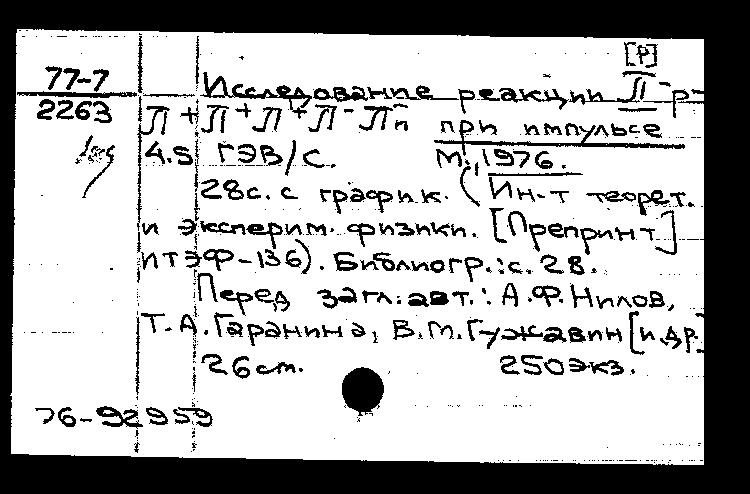 [Р]
77-7 Исследование реакции П⁻р-
2263 П⁺П⁺П⁺П⁻П⁻n при импульсе
4.5 ГЭВ/С. М., 1976.
28с. с график. (Ин-т теорет.
и эксперим. физики. [Препринт]
ИТЭФ-136). Библиогр.: с. 28.
Перед загл. авт.: А.Ф. Нилов,
Т.А. Гаранина, В.М. Гужавин [и др.]
26 см. 250 экз.
76-92959